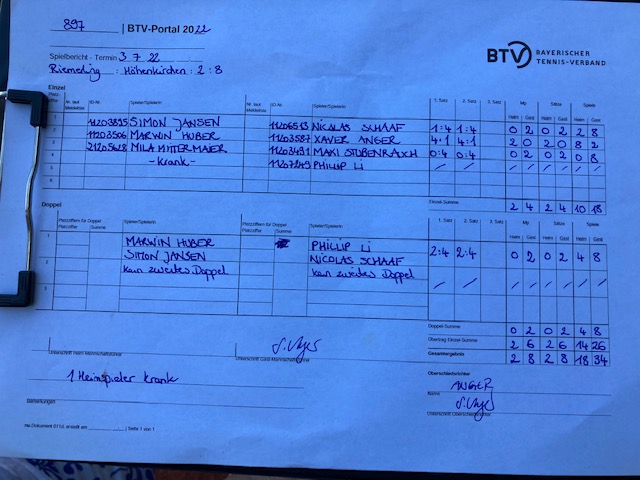 897 | BTV-Portal 2022
Spielbericht - Termin 3.7.22
Riemerling : Höhenkirchen : 2:8
BTV BAYERISCHER TENNIS-VERBAND
Einzel
Platz-ziffer Nr. laut Meldeliste ID-Nr. Spieler/Spielerin Nr. laut Meldeliste ID-Nr. Spieler/Spielerin 1. Satz 2. Satz 3. Satz Mp Sätze Spiele
Heim Gast Heim Gast Heim Gast
SIMON JANSEN NICOLAS SCHAAF 1:4 1:4 0 2 0 2 2 8
11203506 MARWIN HUBER 11203587 XAVER ANGER 4:1 4:1 2 0 2 0 8 2
MILA MITTERMAIER 11203431 MAXI STUBENRAUCH 0:4 0:4 0 2 0 2 0 8
-krank- 11207249 PHILLIP LI
5
6
Einzel-Summe 2 4 2 4 10 18
Doppel
Platzziffern für Doppel Spieler/Spielerin Platzziffern für Doppel Spieler/Spielerin 1. Satz 2. Satz 3. Satz Mp Sätze Spiele
Platzziffer Summe Platzziffer Summe Heim Gast Heim Gast Heim Gast
1 MARWIN HUBER PHILLIP LI
SIMON JANSEN NICOLAS SCHAAF 2:4 2:4 0 2 0 2 4 8
2 kein zweites Doppel kein zweites Doppel
3
Doppel-Summe 0 2 0 2 4 8
Übertrag Einzel-Summe 2 6 2 6 14 26
Gesamtergebnis 2 8 2 8 18 34
Unterschrift Heim-Mannschaftsführer Unterschrift Gast-Mannschaftsführer
Oberschiedsrichter
1 Heimspieler krank
ANGER
Name
Bemerkungen
Unterschrift Oberschiedsrichter
nu.Dokument 0116, erstellt am | Seite 1 von 1